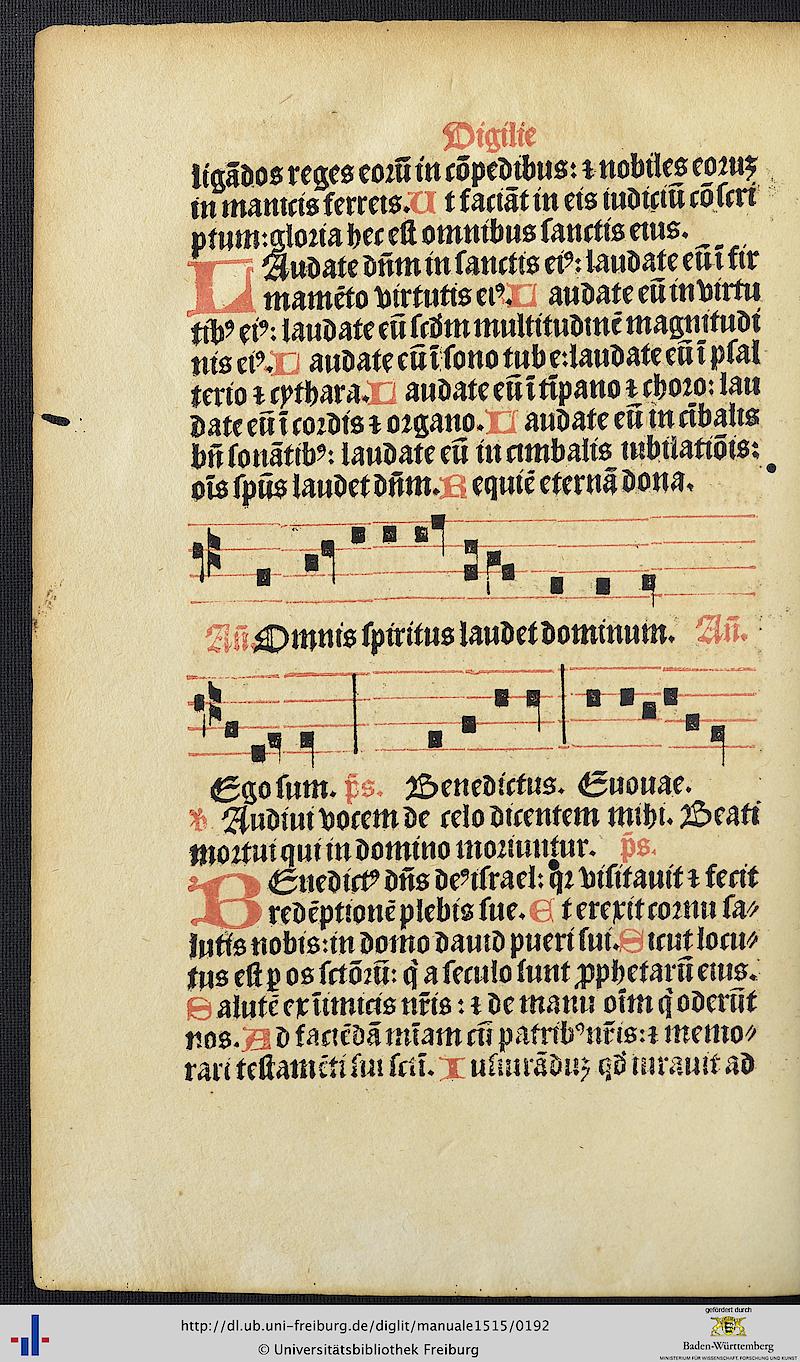 Vigilie
ligādos reges eorū in cōpedibus: ⁊ nobiles eoruꝫ
in manicis ferreis. U t faciāt in eis iudiciū cōscri
ptum: gloria hec est omnibus sanctis eius.
LAudate dn̄m in sanctis eiꝰ: laudate eū ī fir
mamēto virtutis eiꝰ. L audate eū in virtu
tibꝰ eiꝰ: laudate eū scd̄m multitudinē magnitudi
nis eiꝰ. L audate eū ī sono tube: laudate eū ī psal
terio ⁊ cythara. L audate eū ī tīpano ⁊ choro: lau
date eū ī cordis ⁊ organo. L audate eū in cībalis
bn̄ sonātibꝰ: laudate eū in cimbalis iubilatiōis:
oīs spūs laudet dn̄m. R equiē eternā dona.
Añ. Omnis spiritus laudet dominum. Añ.
Ego sum. p̄s. Benedictus. Euouae.
℣ Audiui vocem de celo dicentem mihi. Beati
mortui qui in domino moriuntur. p̄s.
BEnedictꝰ dn̄s deꝰ israel: qꝛ visitauit ⁊ fecit
redēptionē plebis sue. E t erexit cornu sa⸗
lutis nobis: in domo dauid pueri sui. S icut locu⸗
tus est ꝑ os sctōrū: q̇ a seculo sunt ꝓphetarū eius.
S alutē ex īimicis nr̄is: ⁊ de manu oīm q̇ oderūt
nos. A d faciēdā mīam cū patribꝰ nr̄is: ⁊ memo⸗
rari testamēti sui sctī. I usiurāduꝫ qd̄ iurauit ad
http://dl.ub.uni-freiburg.de/diglit/manuale1515/0192
© Universitätsbibliothek Freiburg
gefördert durch
Baden-Württemberg
MINISTERIUM FÜR WISSENSCHAFT, FORSCHUNG UND KUNST